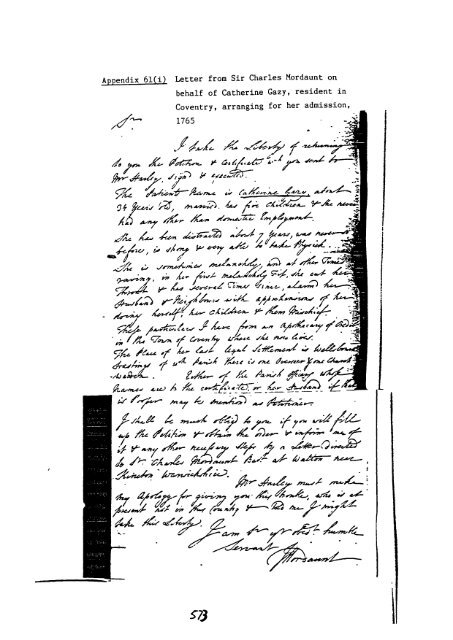 Appendix 61(i) Letter from Sir Charles Mordaunt on
behalf of Catherine Gazy, resident in
Coventry, arranging for her admission,
1765
Sir
I take the Liberty of returning
to you the Petition & Certificate wch you sent to
Mr Harley, sign'd & executed.
The Patients Name is Catherine Gazy, about
34 Years Old, married, has five Children & she never
had any other than domestic Employment.
She has been distracted about 7 Years, was never so
before, is strong & very able to take Physick.
She is sometimes melancholy, and at other Times
raving, in her first melancholy Fit, she cut her
Throat & has several Times since, alarm'd her
Husband & Neighbours with apprehensions of her
doing herself, her Children & them Mischief.
These particulars I have from an Apothecary of
in the Town of Coventry where she now lives.
The Place of her last legal Settlement is
of wch Parish there is one Overseer & one Church
warden. Either of the Parish Officers whose
Names are to the certificate, or her Husband if that
is Proper may be mention'd as Petitioner.
I shall be much oblig'd to you if you will fill
up the Petition & obtain the order & inform me of
it & any other necessary steps by a Letter directed
to Sr Charles Mordaunt Bart at Walton near
Kineton Warwickshire.
Mr Harley must make
my Apology for giving you this Trouble, who is at
present not in this County & told me I might
take this Liberty.
I am Sr yr Obedt humble
Servant
Mordaunt
573